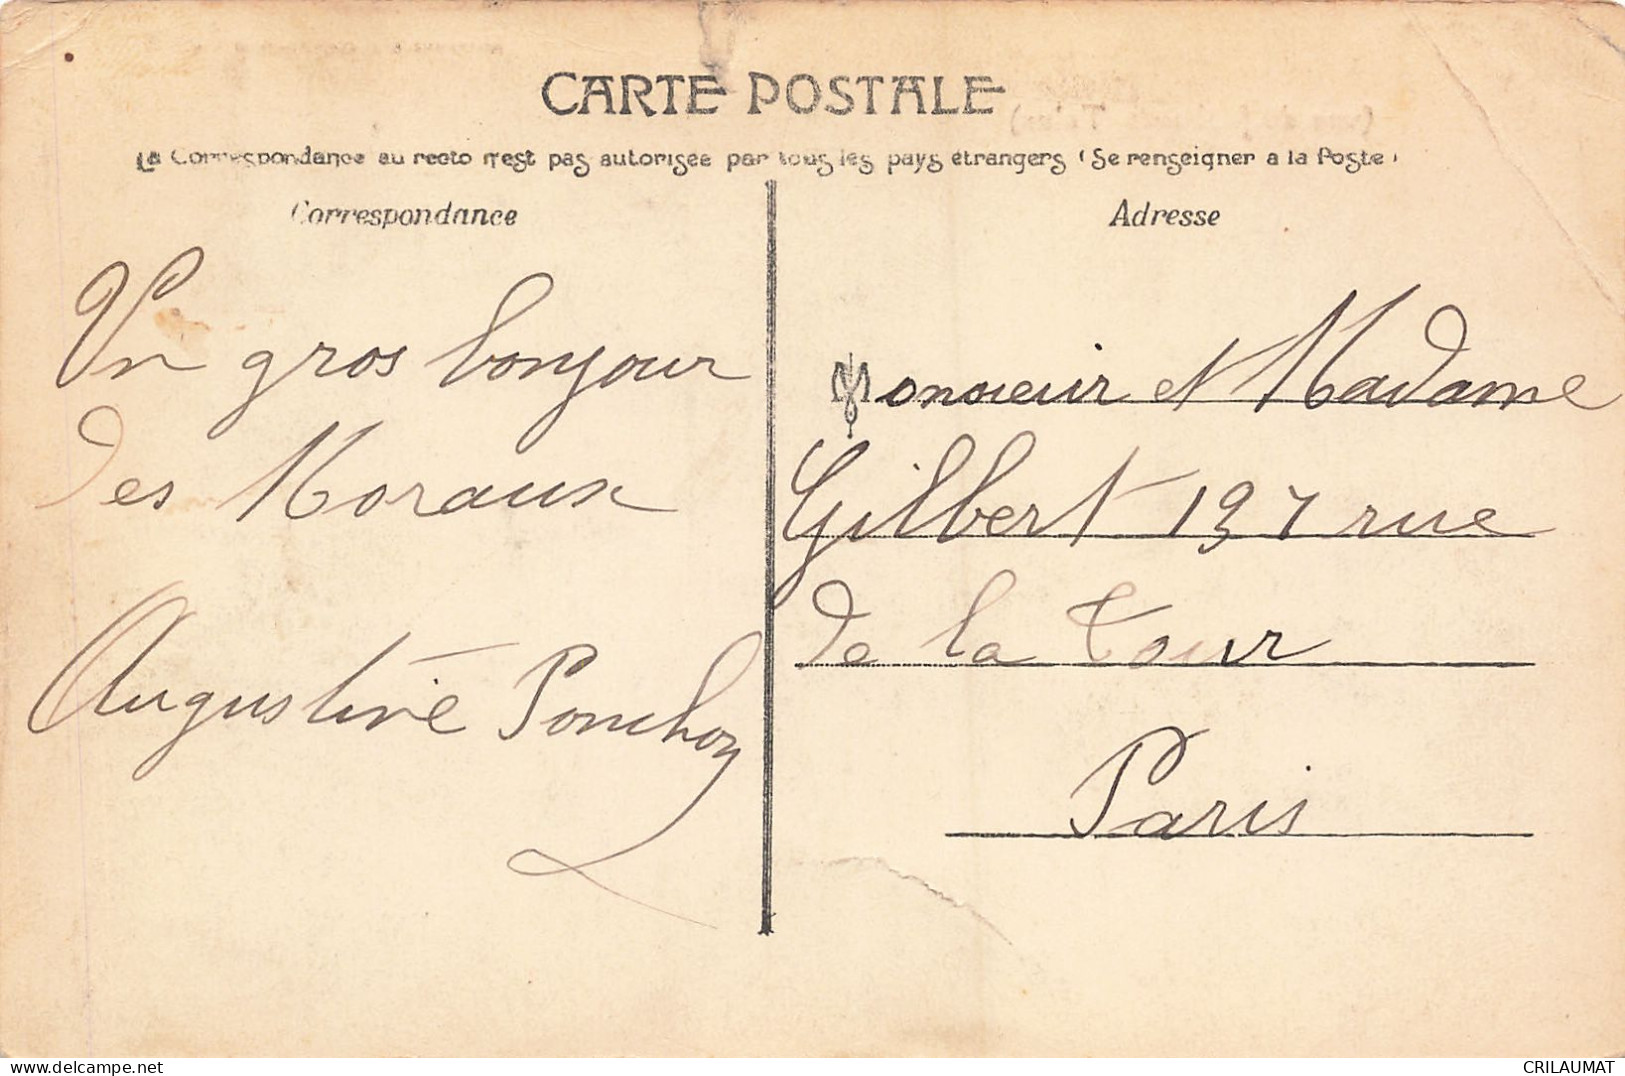 CARTE POSTALE
La Correspondance au recto n'est pas autorisée par tous les pays étrangers (Se renseigner a la Poste)
Correspondance
Adresse
Un gros bonjour
des Moraux
Augustine Ponchon
Monsieur et Madame
Gilbert 137 rue
de la Tour
Paris
CRILAUMAT